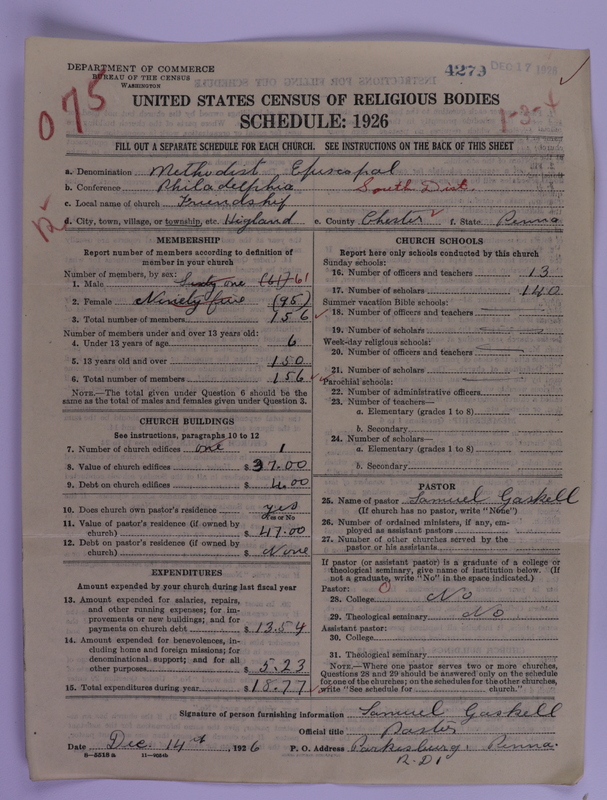 DEPARTMENT OF COMMERCE
BUREAU OF THE CENSUS
WASHINGTON
4279 DEC 17 1926
075
1-3-4
UNITED STATES CENSUS OF RELIGIOUS BODIES
SCHEDULE: 1926
FILL OUT A SEPARATE SCHEDULE FOR EACH CHURCH. SEE INSTRUCTIONS ON THE BACK OF THIS SHEET
a. Denomination Methodist Episcopal
b. Conference Philadelphia South Dist.
c. Local name of church Friendship
d. City, town, village, or township, etc. Higland e. County Chester f. State Penna
MEMBERSHIP
Report number of members according to definition of
member in your church
Number of members, by sex:
1. Male Sixty one (61) 61
2. Female Ninety five (95)
3. Total number of members 156
Number of members under and over 13 years old:
4. Under 13 years of age 6
5. 13 years old and over 150
6. Total number of members 156
NOTE.—The total given under Question 6 should be the
same as the total of males and females given under Question 3.
CHURCH BUILDINGS
See instructions, paragraphs 10 to 12
7. Number of church edifices one 1
8. Value of church edifices $ 37.00
9. Debt on church edifices $ 4.00
10. Does church own pastor's residence yes
(Yes or No)
11. Value of pastor's residence (if owned by
church) $ 47.00
12. Debt on pastor's residence (if owned by
church) $ None
EXPENDITURES
Amount expended by your church during last fiscal year
13. Amount expended for salaries, repairs,
and other running expenses; for im-
provements or new buildings; and for
payments on church debt $ 13.54
14. Amount expended for benevolences, in-
cluding home and foreign missions; for
denominational support; and for all
other purposes $ 5.23
15. Total expenditures during year $ 18.77
CHURCH SCHOOLS
Report here only schools conducted by this church
Sunday schools:
16. Number of officers and teachers 13
17. Number of scholars 140
Summer vacation Bible schools:
18. Number of officers and teachers
19. Number of scholars
Week-day religious schools:
20. Number of officers and teachers
21. Number of scholars
Parochial schools:
22. Number of administrative officers
23. Number of teachers—
a. Elementary (grades 1 to 8)
b. Secondary
24. Number of scholars—
a. Elementary (grades 1 to 8)
b. Secondary
PASTOR
25. Name of pastor Samuel Gaskell
(If church has no pastor, write "None")
26. Number of ordained ministers, if any, em-
ployed as assistant pastors
27. Number of other churches served by the
pastor or his assistants
If pastor (or assistant pastor) is a graduate of a college or
theological seminary, give name of institution below. (If
not a graduate, write "No" in the space indicated.)
Pastor: 0
28. College No
29. Theological seminary No
Assistant pastor:
30. College
31. Theological seminary
NOTE.—Where one pastor serves two or more churches,
Questions 28 and 29 should be answered only on the schedule
for one of the churches; on the schedules for the other churches,
write "See schedule for church."
Signature of person furnishing information Samuel Gaskell
Official title Pastor
Date Dec. 14th, 1926 P. O. Address Parkesburg, Penna.
R.D1
8—5518a 11—9024